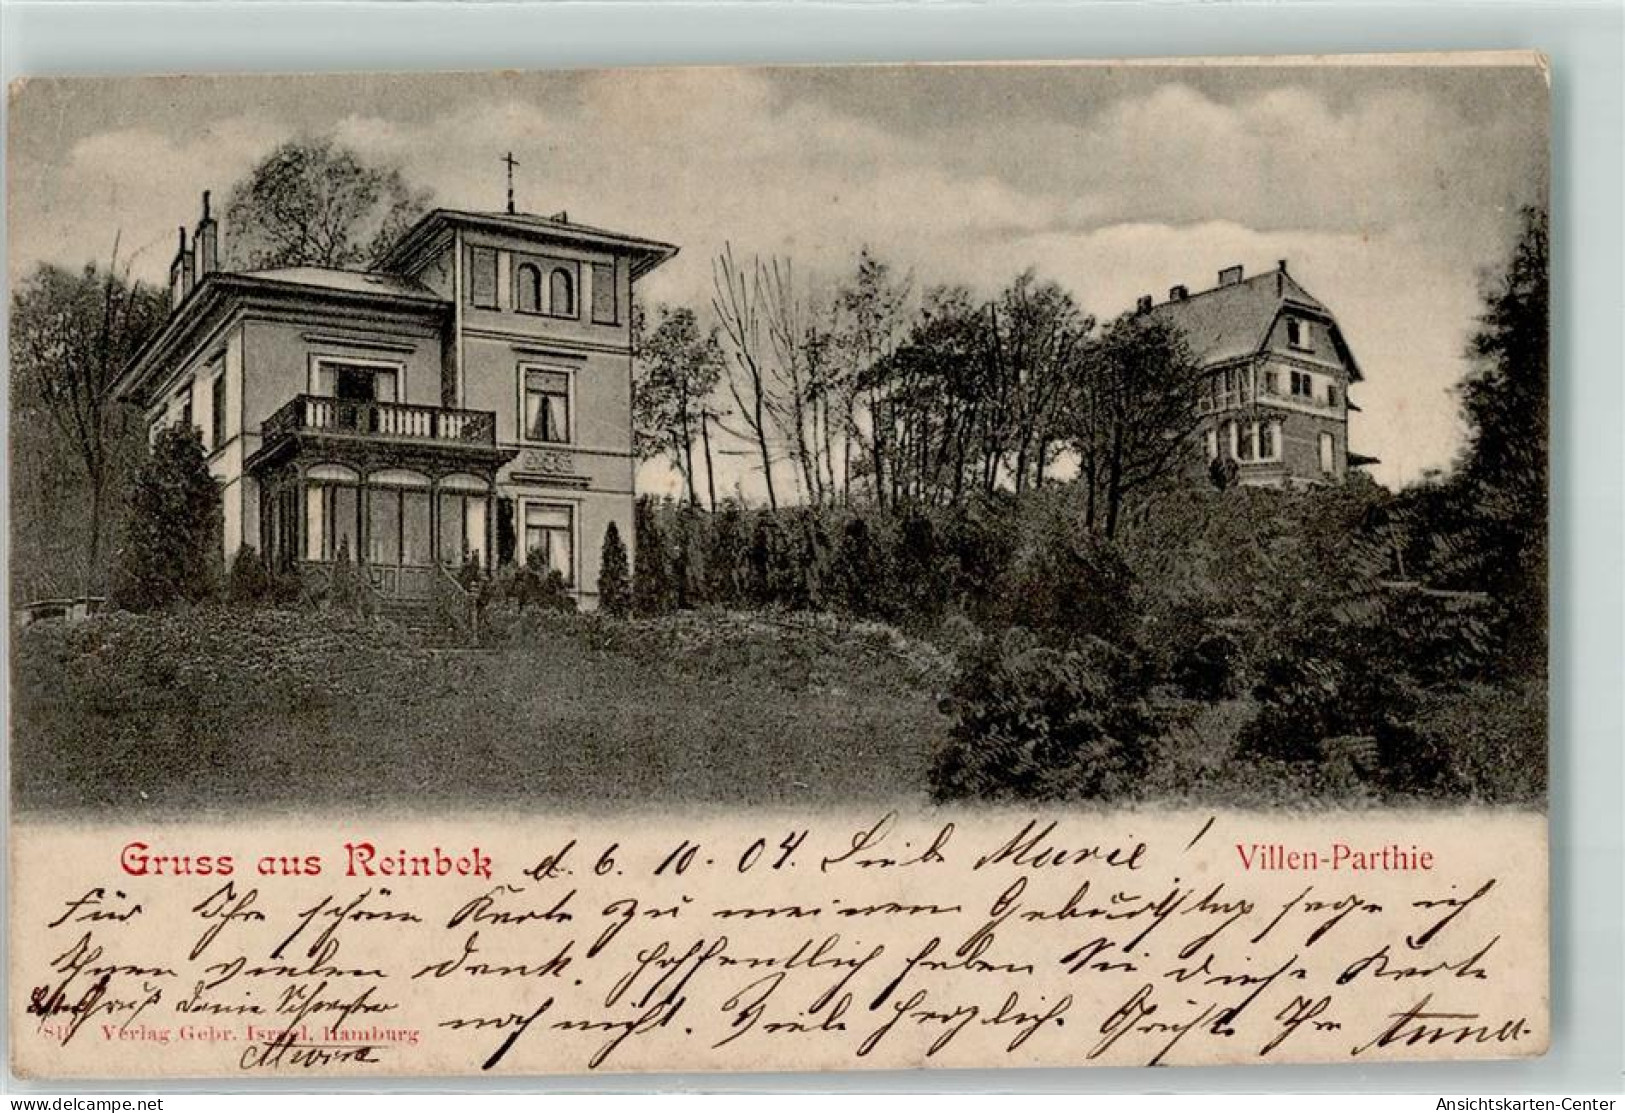 Gruss aus Reinbek d. 6. 10. 04. Liebe Marie! Villen-Parthie
Für Ihre schöne Karte zu meinem Geburtstag sage ich
Ihnen vielen Dank. Hoffentlich haben Sie diese Karte
Gruß Deine Schwester
noch nicht. Viele herzliche Grüße Ihre Anna.
819 Verlag Gebr. Israel, Hamburg
delcampe.net
Ansichtskarten-Center